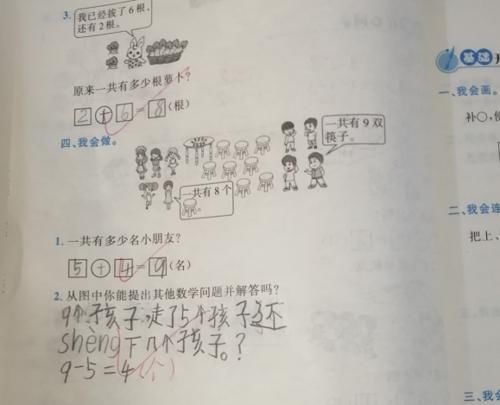 3.
我已经拔了6根,
还有2根。
原来一共有多少根萝卜?
2+6=8(根)
四、我会做。
一共有9双
筷子。
一共有8个
。
1. 一共有多少名小朋友?
5+4=9(名)
2. 从图中你能提出其他数学问题并解答吗?
9个孩子,走了5个孩子还
shèng下几个孩子。?
9-5=4(个)
基础
一、我会画。
补○,
二、我会连
把上、
三、我会